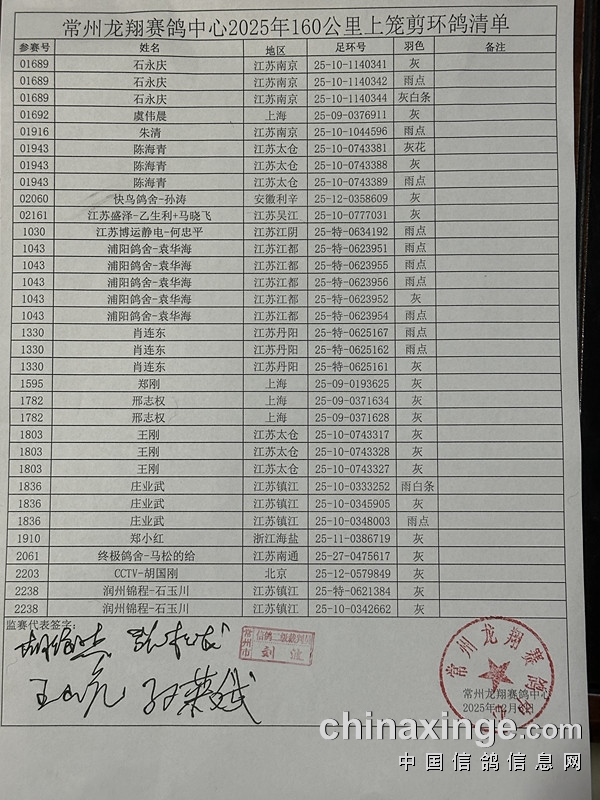 常州龙翔赛鸽中心2025年160公里上笼剪环鸽清单
参赛号 姓名 地区 足环号 羽色 备注
01689 石永庆 江苏南京 25-10-1140341 灰
01689 石永庆 江苏南京 25-10-1140342 雨点
01689 石永庆 江苏南京 25-10-1140344 灰白条
01692 虞伟晨 上海 25-09-0376911 灰
01916 朱清 江苏南京 25-10-1044596 雨点
01943 陈海青 江苏太仓 25-10-0743381 灰花
01943 陈海青 江苏太仓 25-10-0743388 灰
01943 陈海青 江苏太仓 25-10-0743389 雨点
02060 快鸟鸽舍-孙涛 安徽利辛 25-12-0358609 灰
02161 江苏盛泽-乙生利+马晓飞 江苏吴江 25-10-0777031 灰
1030 江苏博运静电-何忠平 江苏江阴 25-特-0634192 雨点
1043 浦阳鸽舍-袁华海 江苏江都 25-特-0623951 雨点
1043 浦阳鸽舍-袁华海 江苏江都 25-特-0623955 雨点
1043 浦阳鸽舍-袁华海 江苏江都 25-特-0623956 雨点
1043 浦阳鸽舍-袁华海 江苏江都 25-特-0623952 灰
1043 浦阳鸽舍-袁华海 江苏江都 25-特-0623954 雨点
1330 肖连东 江苏丹阳 25-特-0625167 雨点
1330 肖连东 江苏丹阳 25-特-0625162 雨点
1330 肖连东 江苏丹阳 25-特-0625161 灰
1595 郑刚 上海 25-09-0193625 灰
1782 邢志权 上海 25-09-0371634 灰
1782 邢志权 上海 25-09-0371628 灰
1803 王刚 江苏太仓 25-10-0743317 灰
1803 王刚 江苏太仓 25-10-0743328 灰
1803 王刚 江苏太仓 25-10-0743327 灰
1836 庄业武 江苏镇江 25-10-0333252 雨白条
1836 庄业武 江苏镇江 25-10-0345905 灰
1836 庄业武 江苏镇江 25-10-0348003 雨点
1910 郑小红 浙江海盐 25-11-0386719 灰
2061 终极鸽舍-马松的给 江苏南通 25-27-0475617 灰
2203 CCTV-胡国刚 北京 25-12-0579849 灰
2238 润州锦程-石玉川 江苏镇江 25-特-0621384 灰
2238 润州锦程-石玉川 江苏镇江 25-10-0342662 灰
监赛代表签字:
常州市 信鸽二级裁判员
刘
常州龙翔赛鸽中心
常州龙翔赛鸽中心
chinaxinge.com
中国信鸽信息网